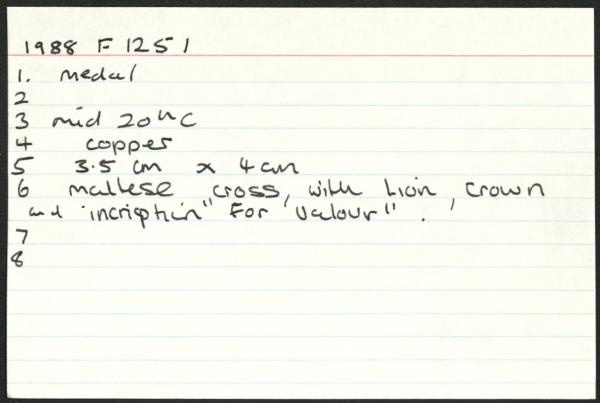 1988 F 1251
1. medal
2
3 mid 20th C
4 copper
5 3.5 cm x 4 cm
6 maltese cross, with lion, crown
and "incription" For "Valour".
7
8